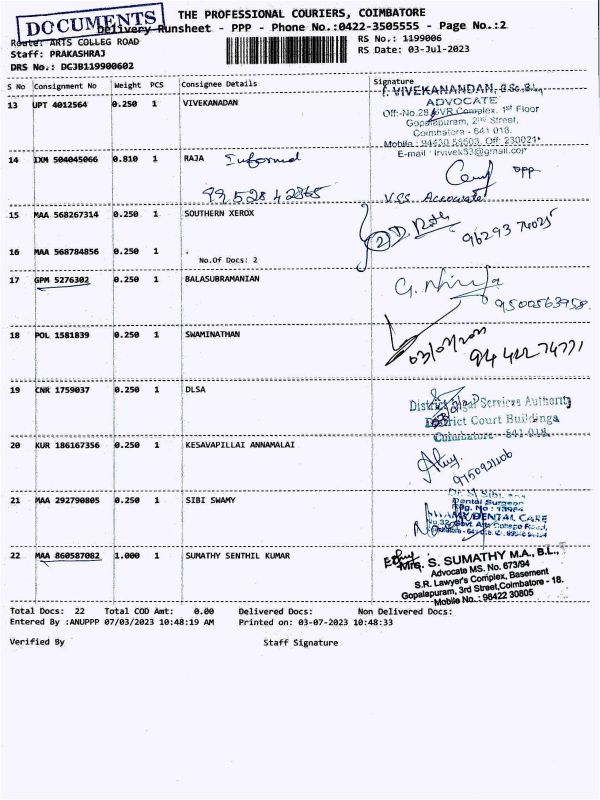 DOCUMENTS
THE PROFESSIONAL COURIERS, COIMBATORE
Delivery Runsheet - PPP - Phone No.:0422-3505555 - Page No.:2
Route: ARTS COLLEG ROAD
RS No.: 1199006
Staff: PRAKASHRAJ
RS Date: 03-Jul-2023
DRS No.: DCJB119900602
S No Consignment No Weight PCS Consignee Details Signature
13 UPT 4012564 0.250 1 VIVEKANADAN
I. VIVEKANANDAN, B.Sc.,B.L.,
ADVOCATE
Off:-No.28, SVR Complex, 1st Floor
Gopalapuram, 2nd Street,
Coimbatore - 641 018.
E-mail : lrvivek53@gmail.com
14 IXM 504045066 0.810 1 RAJA Informed
99528 42865
VSS Accocuate
opp
15 MAA 568267314 0.250 1 SOUTHERN XEROX
2 D.
96293 74025
16 MAA 568784856 0.250 1 .
No.Of Docs: 2
17 GPM 5276302 0.250 1 BALASUBRAMANIAN
G.
9500563958
18 POL 1581839 0.250 1 SWAMINATHAN
03/07/2023
94 422 74771
19 CNR 1759037 0.250 1 DLSA
District Legal Services Authority
District Court Buildings
Coimbatore - 641 018.
20 KUR 186167356 0.250 1 KESAVAPILLAI ANNAMALAI
21 MAA 292790805 0.250 1 SIBI SWAMY
Dental Surgeon
DENTAL CARE
22 MAA 860587082 1.000 1 SUMATHY SENTHIL KUMAR
Mrs. S. SUMATHY M.A., B.L.,
Advocate MS. No. 673/94
S.R. Lawyer's Complex, Basement
Gopalapuram, 3rd Street, Coimbatore - 18.
Mobile No. : 98422 30805
Total Docs: 22 Total COD Amt: 0.00 Delivered Docs: Non Delivered Docs:
Entered By :ANUPPP 07/03/2023 10:48:19 AM Printed on: 03-07-2023 10:48:33
Verified By Staff Signature